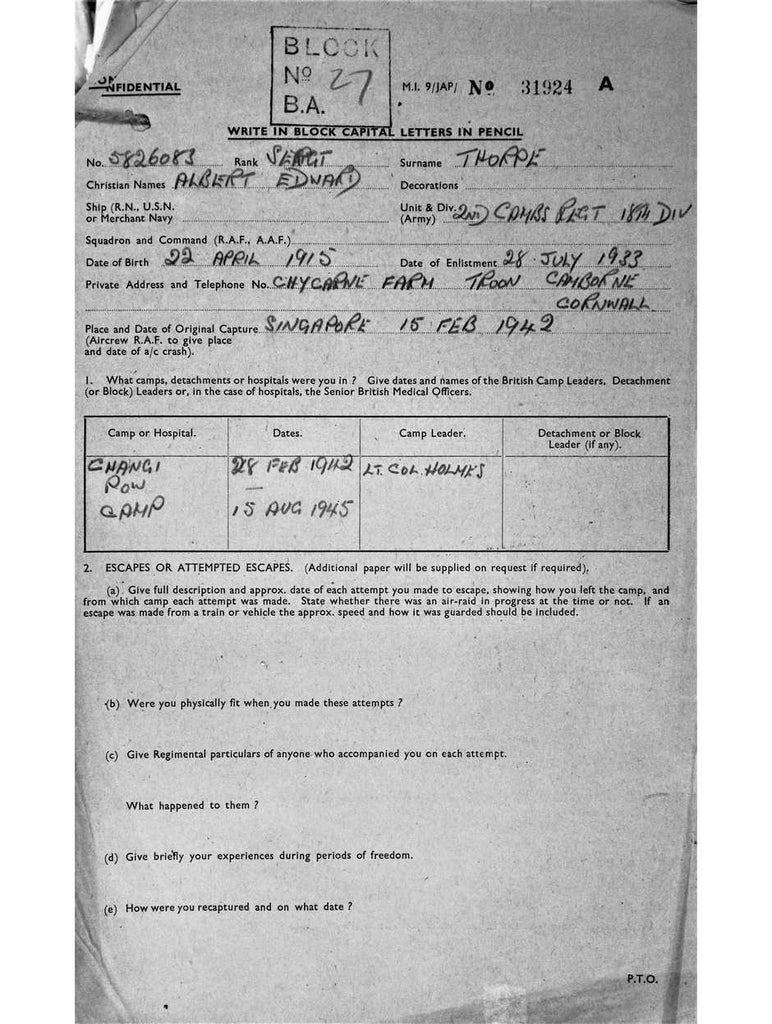 BLOCK
No 27
B.A.
CONFIDENTIAL
M.I. 9/JAP/ No 31924 A
WRITE IN BLOCK CAPITAL LETTERS IN PENCIL
No. 5826083 Rank SERGT Surname THORPE
Christian Names ALBERT EDWARD Decorations
Ship (R.N., U.S.N. or Merchant Navy
Unit & Div. (Army) 2ND CAMBS REGT 18TH DIV
Squadron and Command (R.A.F., A.A.F.)
Date of Birth 22 APRIL 1915 Date of Enlistment 28 JULY 1933
Private Address and Telephone No. CHYCARNE FARM TROON CAMBORNE
CORNWALL
Place and Date of Original Capture SINGAPORE 15 FEB 1942
(Aircrew R.A.F. to give place
and date of a/c crash).
1. What camps, detachments or hospitals were you in ? Give dates and names of the British Camp Leaders, Detachment
(or Block) Leaders or, in the case of hospitals, the Senior British Medical Officers.
Camp or Hospital. Dates. Camp Leader. Detachment or Block
Leader (if any).
CHANGI 28 FEB 1942 LT. COL. HOLMES
POW —
CAMP 15 AUG 1945
2. ESCAPES OR ATTEMPTED ESCAPES. (Additional paper will be supplied on request if required).
(a) Give full description and approx. date of each attempt you made to escape, showing how you left the camp, and
from which camp each attempt was made. State whether there was an air-raid in progress at the time or not. If an
escape was made from a train or vehicle the approx. speed and how it was guarded should be included.
(b) Were you physically fit when you made these attempts ?
(c) Give Regimental particulars of anyone who accompanied you on each attempt.
What happened to them ?
(d) Give briefly your experiences during periods of freedom.
(e) How were you recaptured and on what date ?
P.T.O.